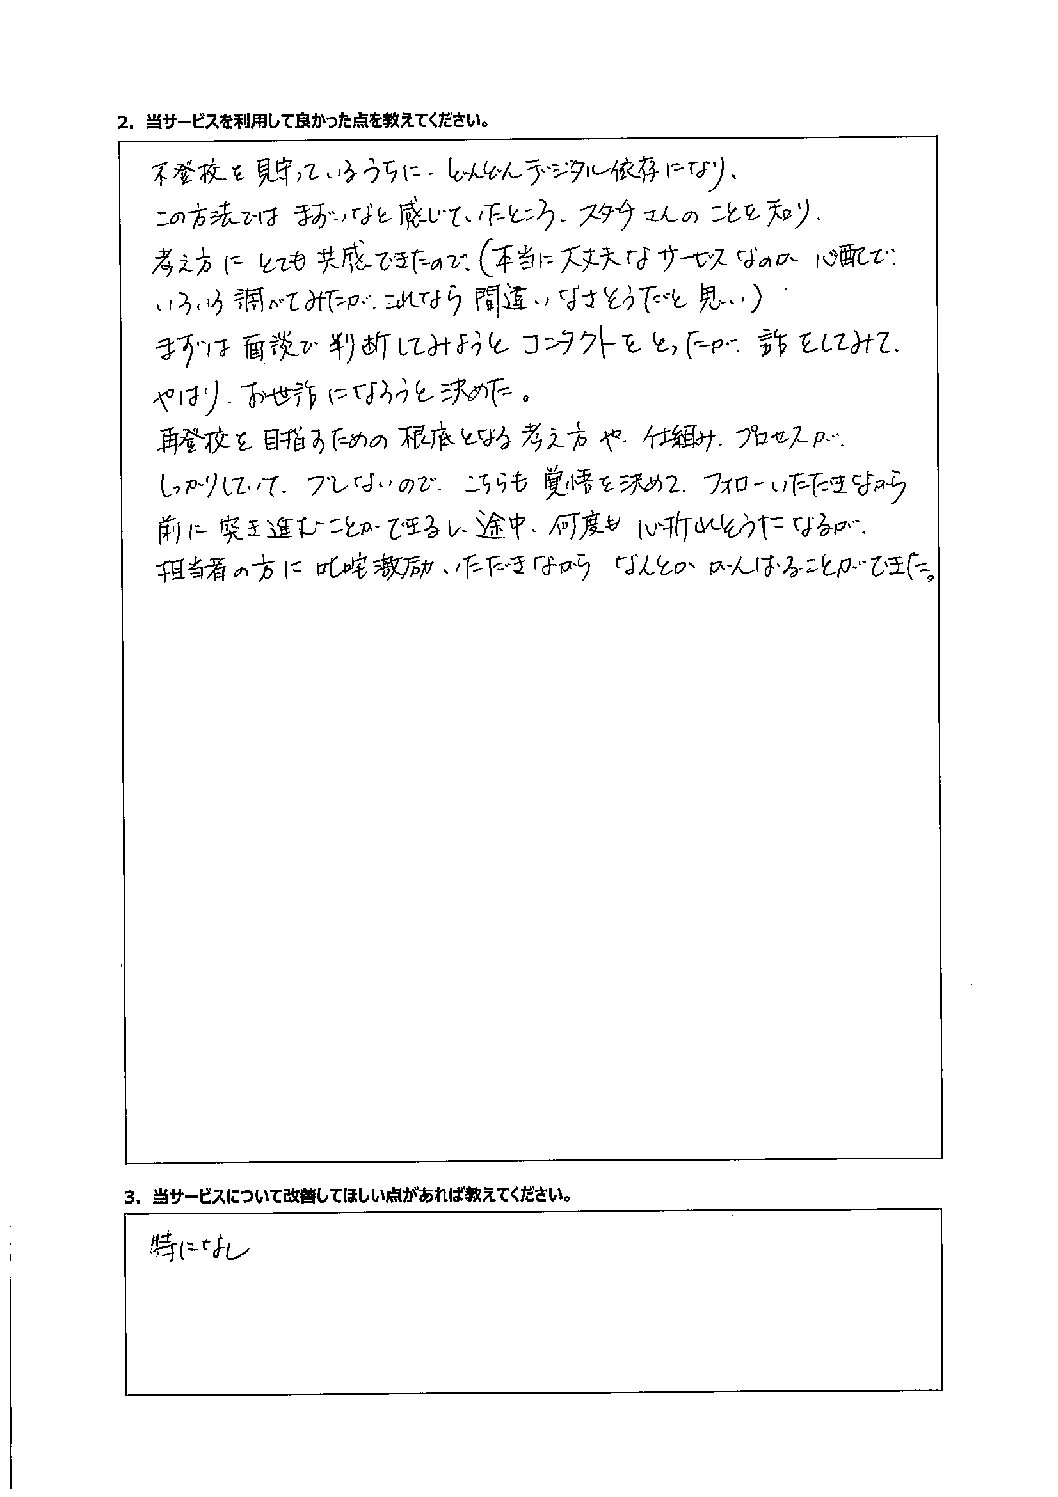 2. 当サービスを利用して良かった点を教えてください。
不登校を見守っているうちに、どんどんデジタル依存になり、
この方法ではまずいなと感じていたところ、スダチさんのことを知り、
考え方にとても共感できたので、(本当に大丈夫なサービスなのか心配で、
いろいろ調べてみたが、これなら間違いなさそうだと思い)
まずは面談で判断してみようとコンタクトをとったが、話をしてみて、
やはり、お世話になろうと決めた。
再登校を目指すための根底となる考え方や、仕組み、プロセスが、
しっかりしていて、ブレないので、こちらも覚悟を決めて、フォローいただきながら
前に突き進むことができるし、途中、何度も心折れそうになるが、
担当者の方に叱咤激励いただきながらなんとかがんばることができた。
3. 当サービスについて改善してほしい点があれば教えてください。
特になし